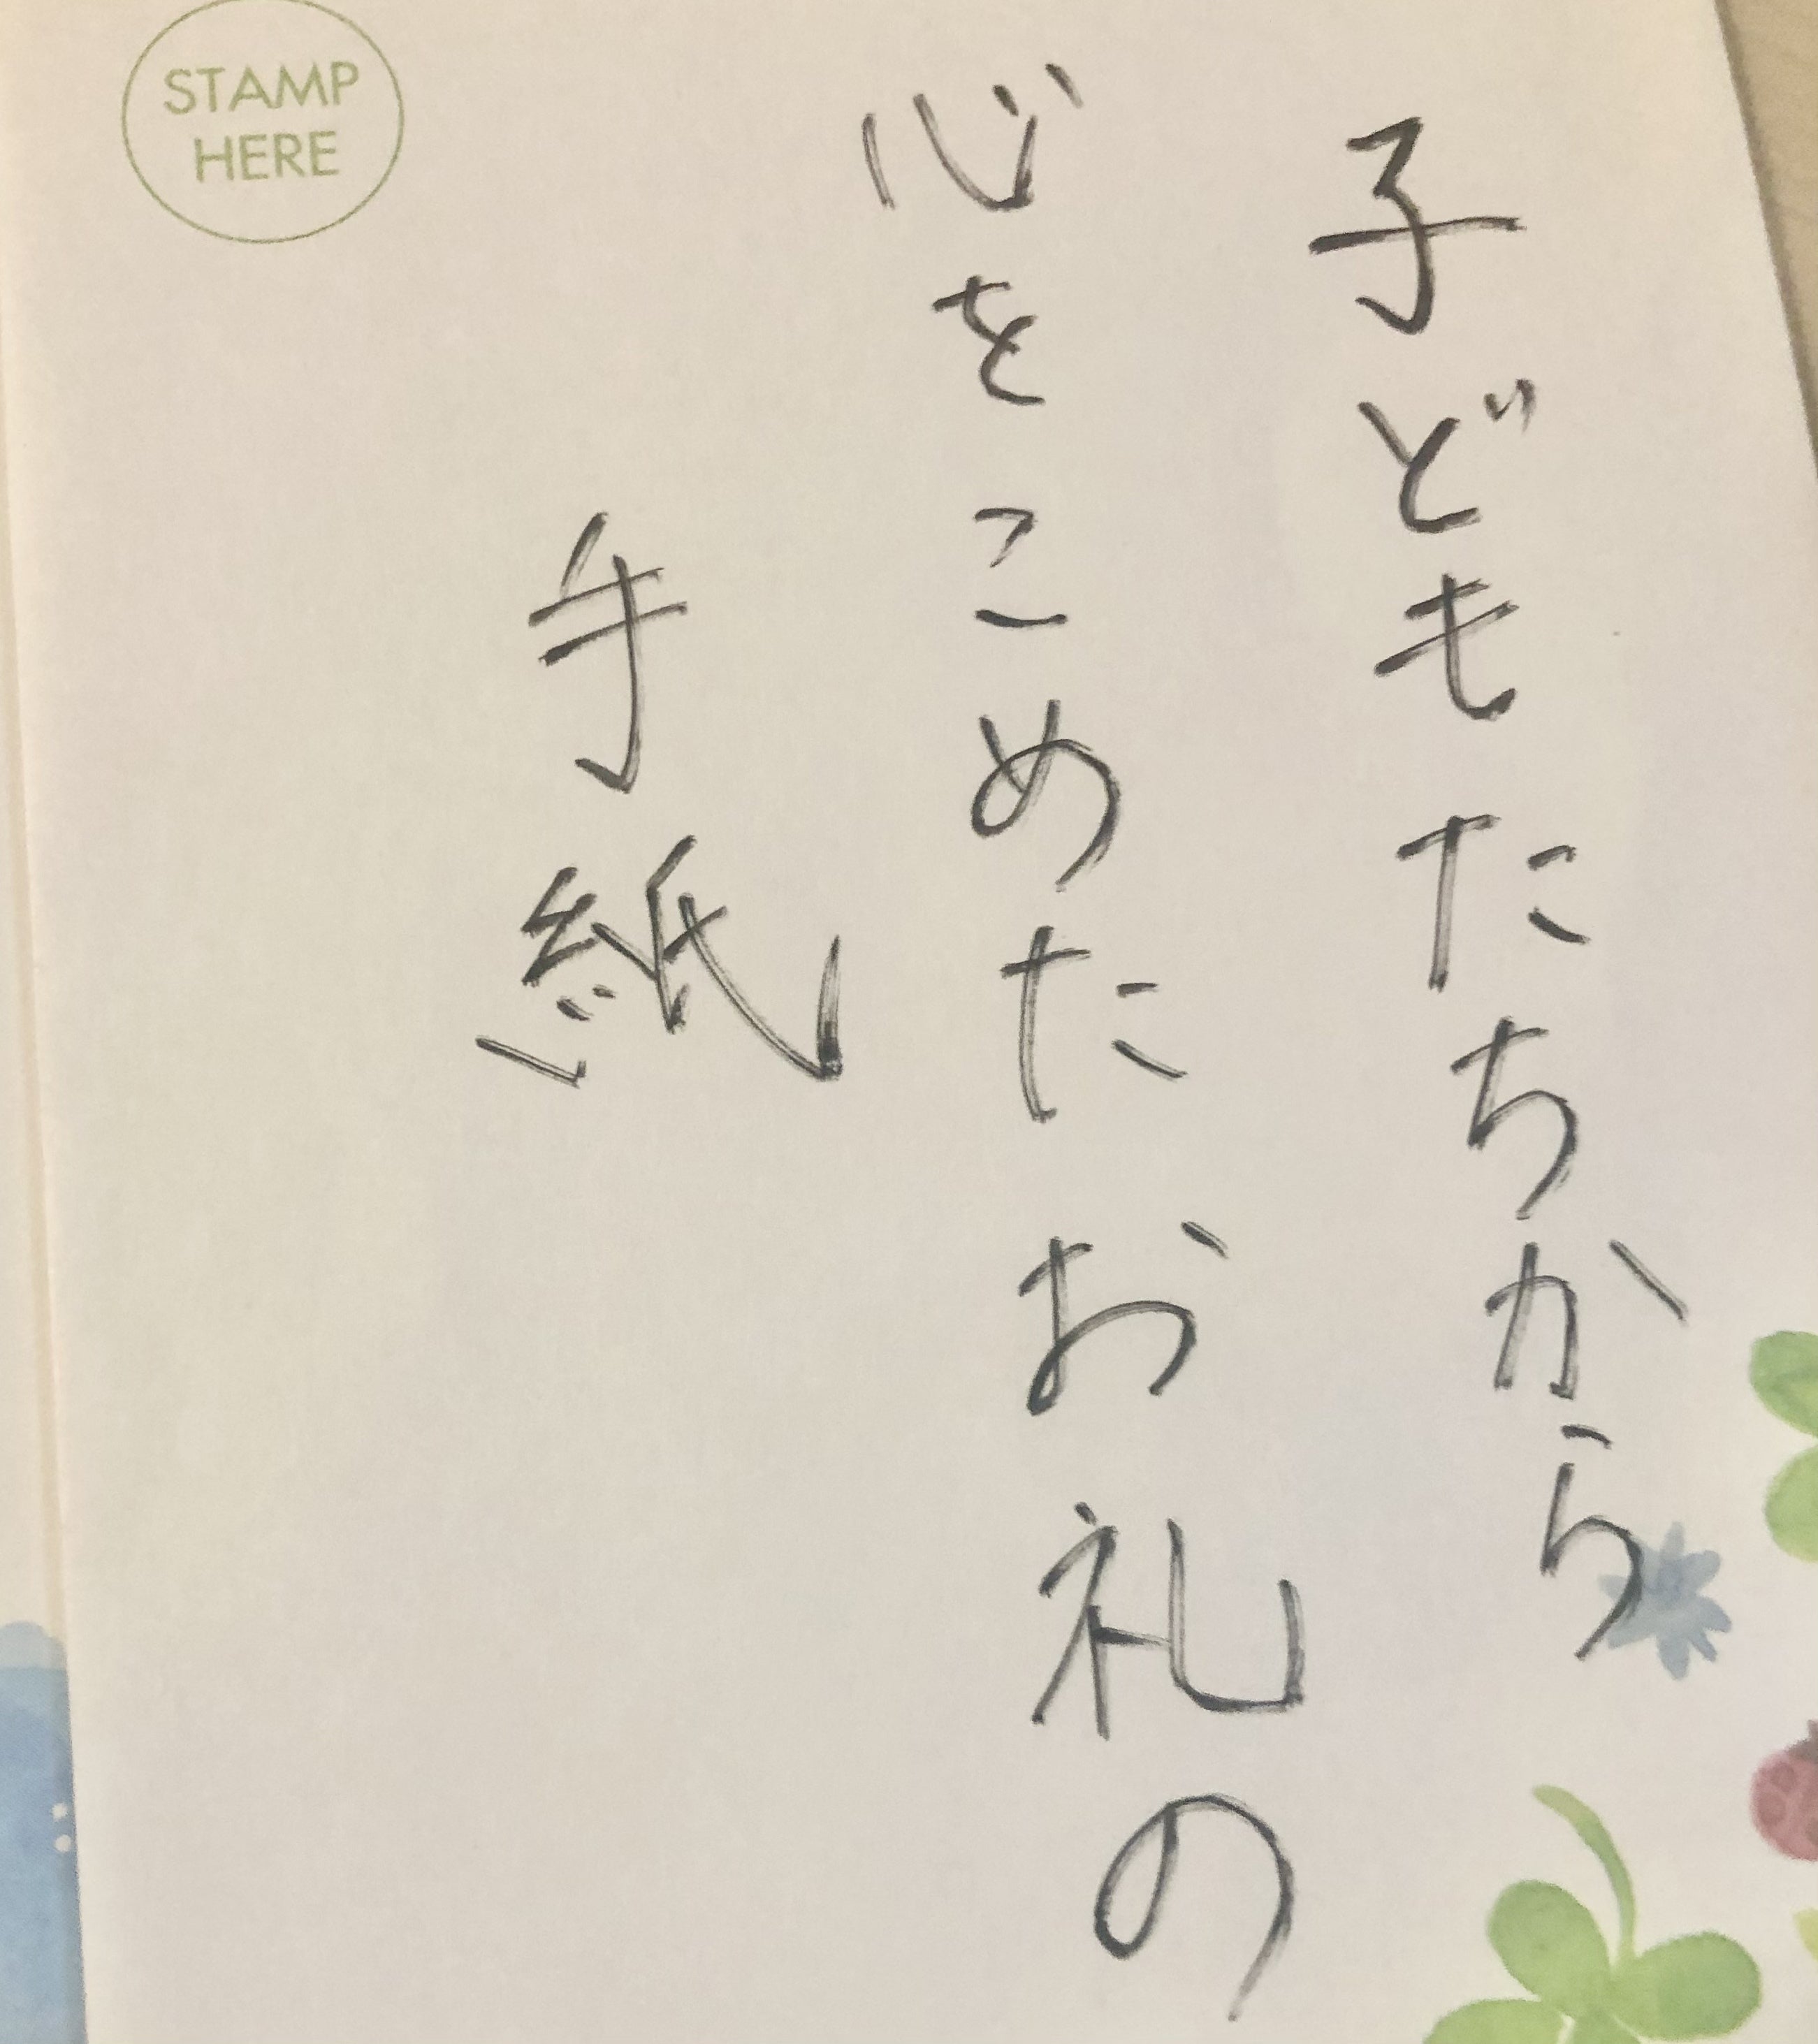 子どもたちから
心をこめたお礼の
手紙
STAMP
HERE